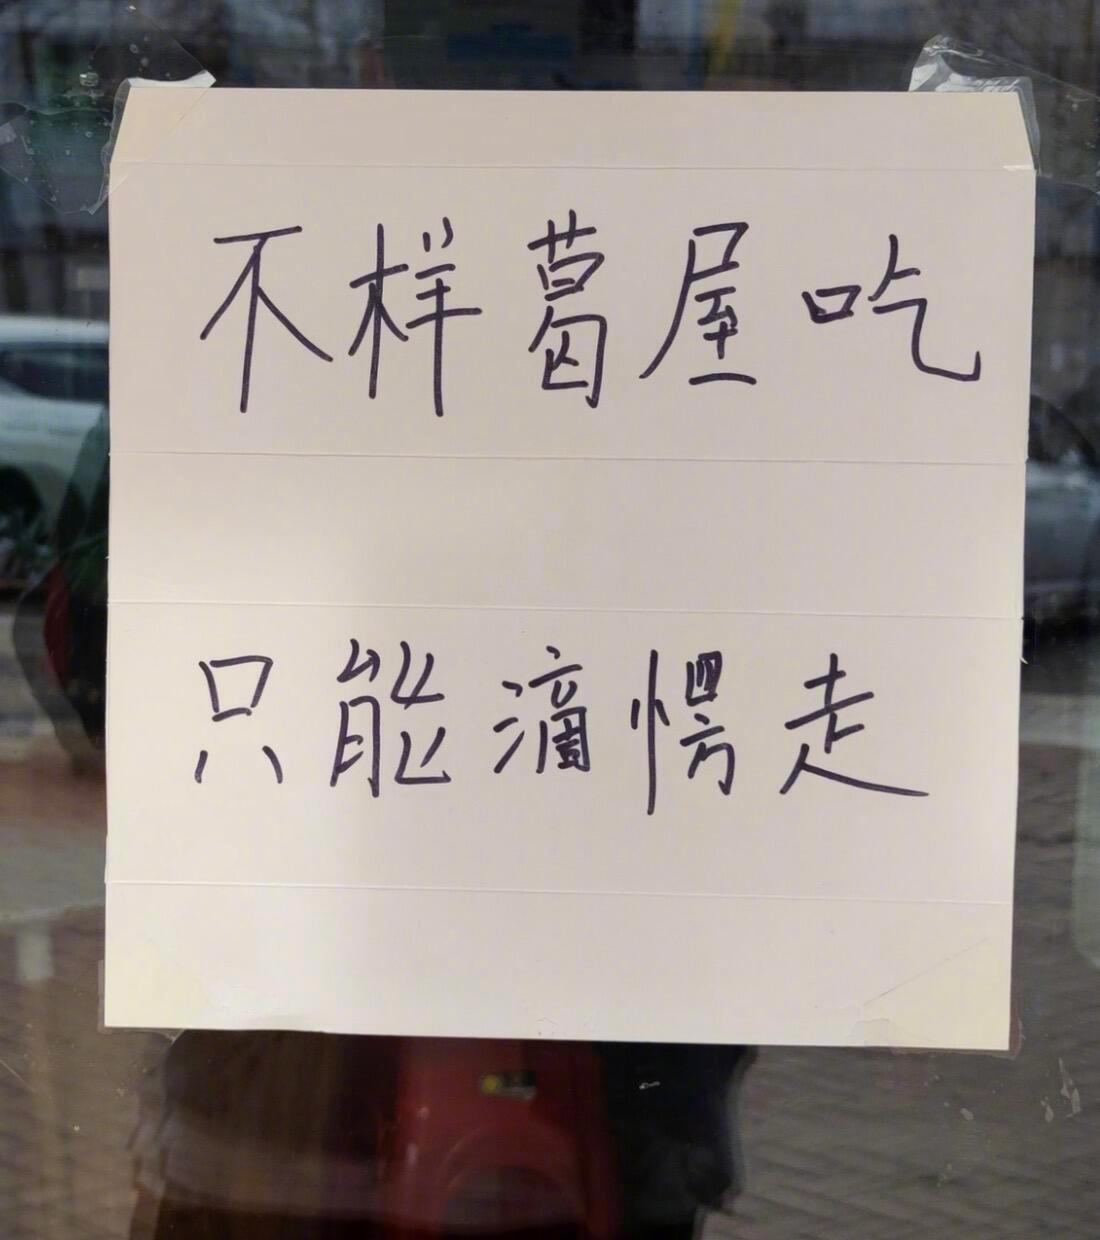 不样葛屋吃
只能滴愣走